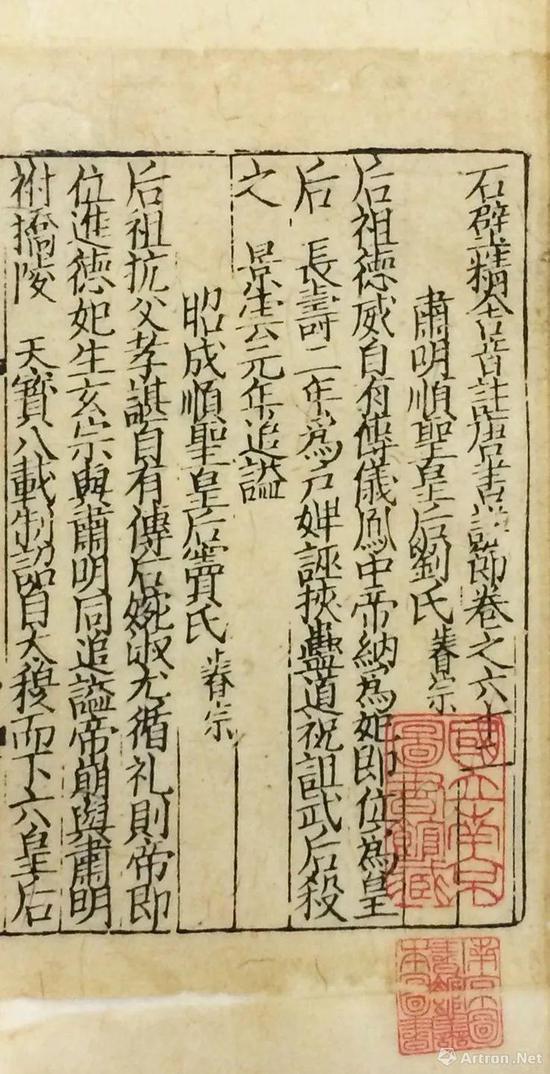 石壁精舍音註唐書詳節卷之六十
肅明順聖皇后劉氏 睿宗
后祖德威自有傳儀鳳中帝納為妃即位為皇
后 長壽二年為戶婢誣挾蠱道祝詛武后殺
之 景雲元年追謚
昭成順聖皇后竇氏 睿宗
后祖抗父孝諶自有傳后婉淑尤循礼則帝即
位進德妃生玄宗與肅明同追謚帝崩與肅明
祔橋陵 天寶八載制詔自太穆而下六皇后
國立南京
圖書館藏
南京圖
書館藏善
本圖書
Artron.Net